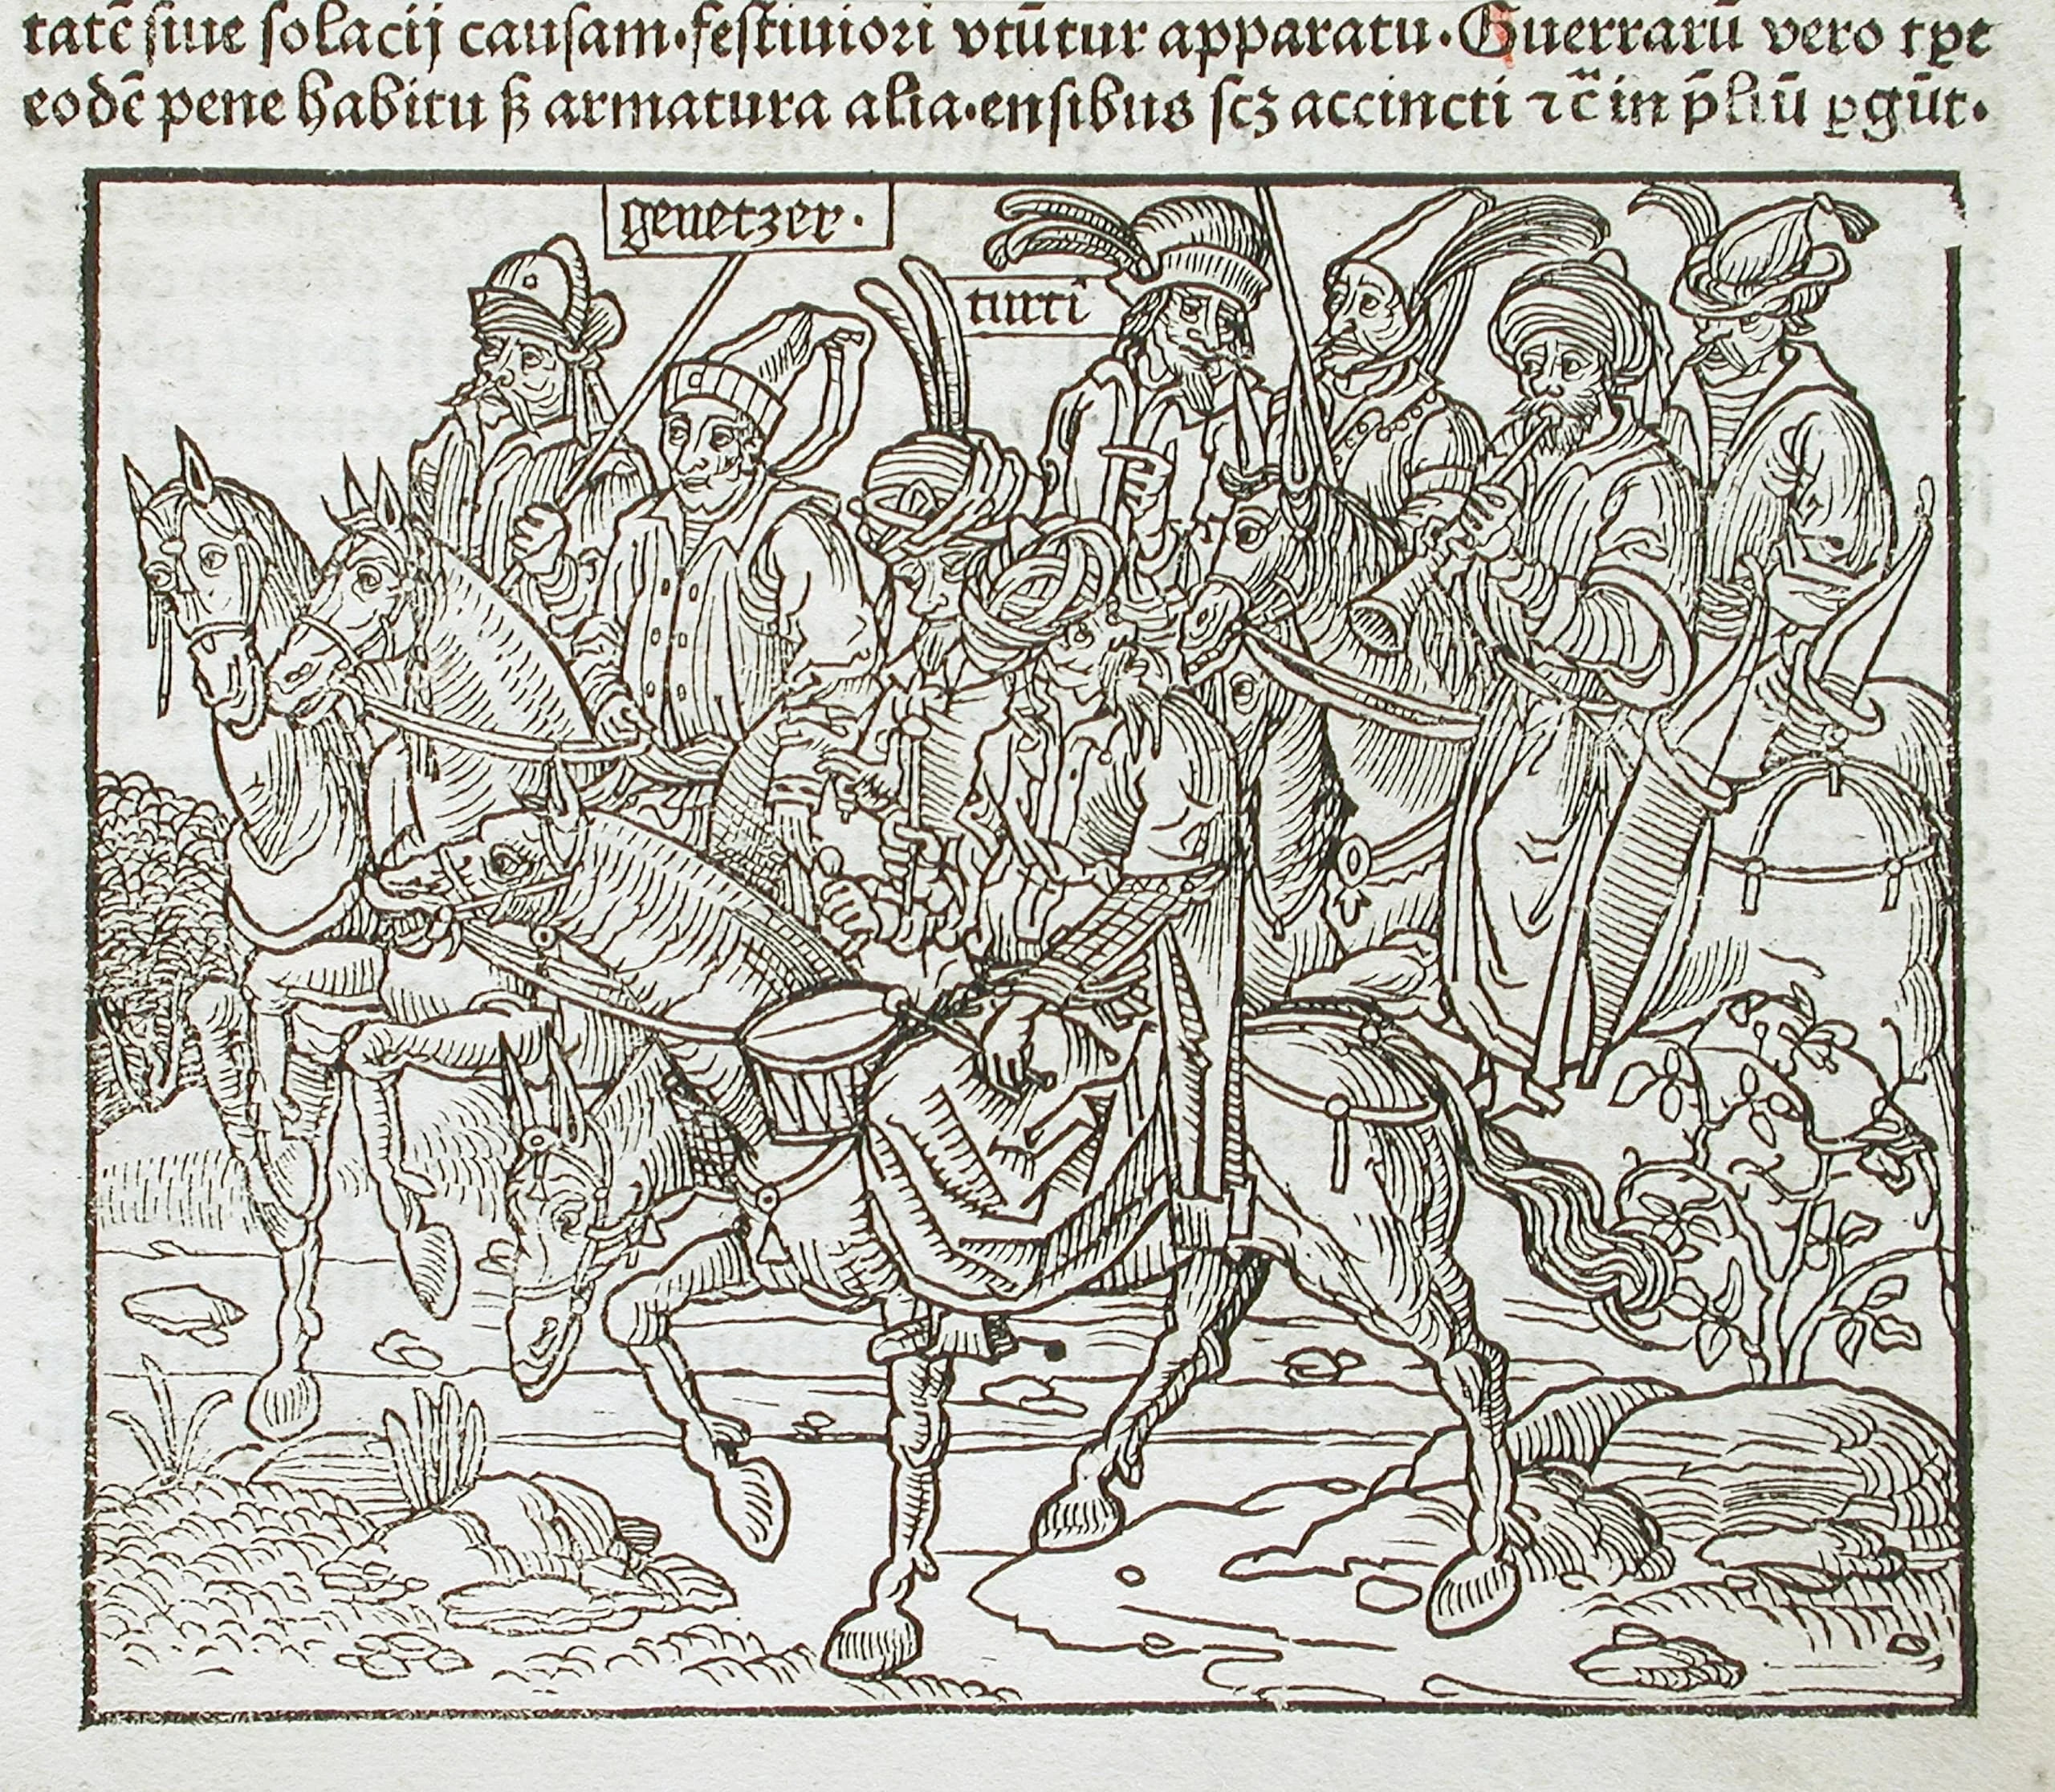 tatē siue solacij causam·festiuiori vtūtur apparatu·Guerrarū vero tp̄e
eodē pene habitu ꝫ armatura alia·ensibus scꝫ accincti ⁊c̄ in p̄liū ꝑgūt·
genetzer·
turci